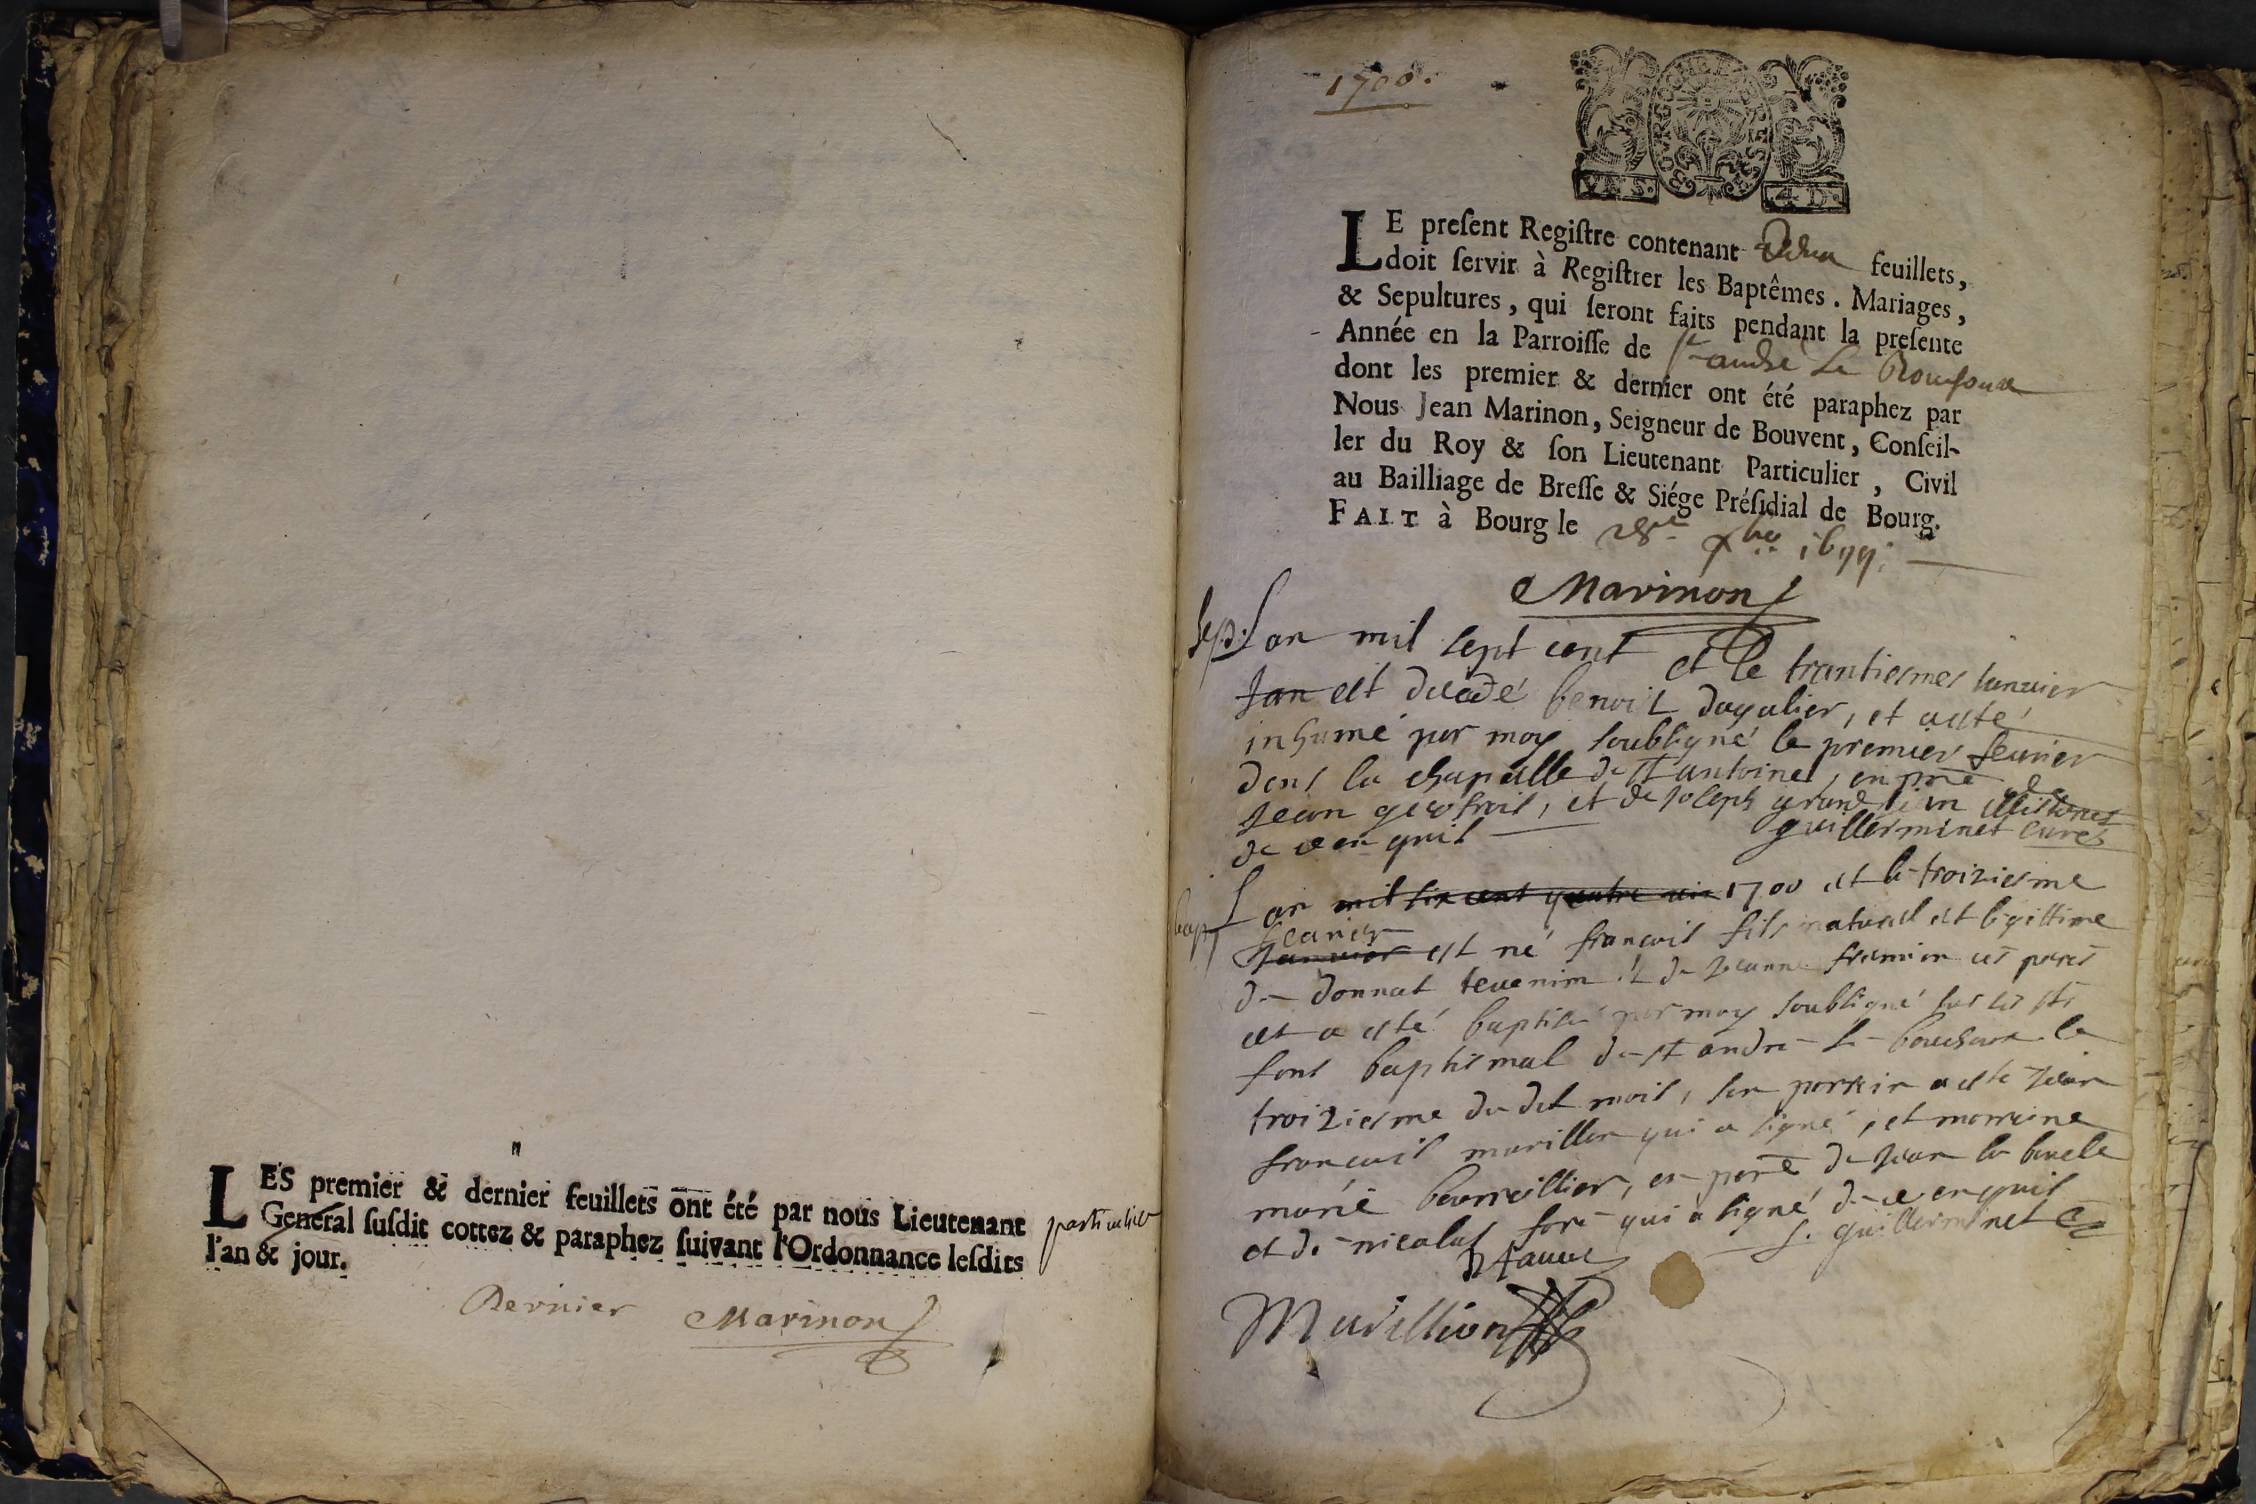 LES premier & dernier feuillets ont été par nous Lieutenant
General susdit cottez & paraphez suivant l'Ordonnance lesdits particulier
l'an & jour.
Dernier Marinon
1700.
BOURGOGNE BRESSE
VN S. 4 D.
LE preſent Regiſtre contenant feuillets,
doit ſervir à Regiſtrer les Baptêmes. Mariages,
& Sepultures, qui ſeront faits pendant la preſente
Année en la Parroiſſe de St andre Le
dont les premier & dernier ont été paraphez par
Nous Jean Marinon, Seigneur de Bouvent, Conſeil-
ler du Roy & ſon Lieutenant Particulier, Civil
au Bailliage de Breſſe & Siége Préſidial de Bourg.
FAIT à Bourg le 28e xbre 1699.
Marinon
Sep. Lan mil sept cent et le trantiesmes Januier
Jan est decedé benoit dagalier, et a esté
inhumé par moy soubsigné le premier feurier
dens la chapelle de st antoine, en pnce
Jean geofroit, et de Joseph grand Jan
de ce enquit guillerminet curé
bap. Lan mil six cent quatre vin 1700 et le troiziesme
feurier
Januier est né françoit fils naturel et legittime
de donnat teuenim et de Jeanne fremion ces peres
et a esté baptisé par moy soubsigné sur les sts
font baptismal de st andre le bouchoux le
troiziesme du dit mois, son parrein a esté Jean
françoit marillon qui a signé, et marreine
marié bourreillier, en pnce de Jean la boucle
et de nicolas fore qui a signé de ce enquis
guillerminet
N faure
Marillion